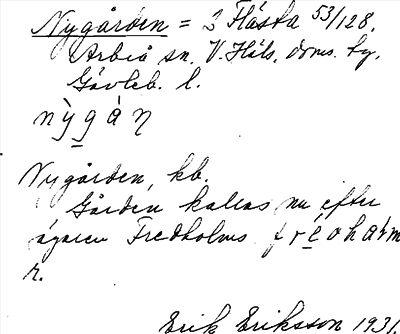 Nygården = 2 Flästa 53/128.
Arbrå sn. V. Häls. doms. bg.
Gävleb. l.
nỳgàn
Nygården, kb.
Gården kallas nu efter
ägaren Fredholms
r.
Erik Eriksson 1931.